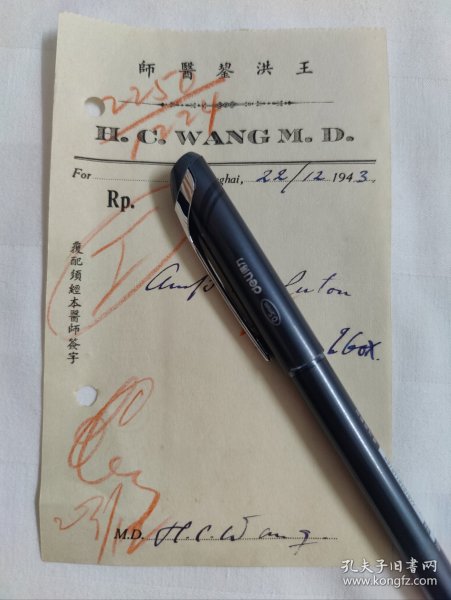 師醫鋆洪王
2250
1224
H. C. WANG M. D.
For
ghai, 22/12 1943
Rp.
I
Amp
1 Box.
復配須經本醫師簽字
M.D. H.C. Wang.
deli
孔夫子旧书网
www.kongfz.com